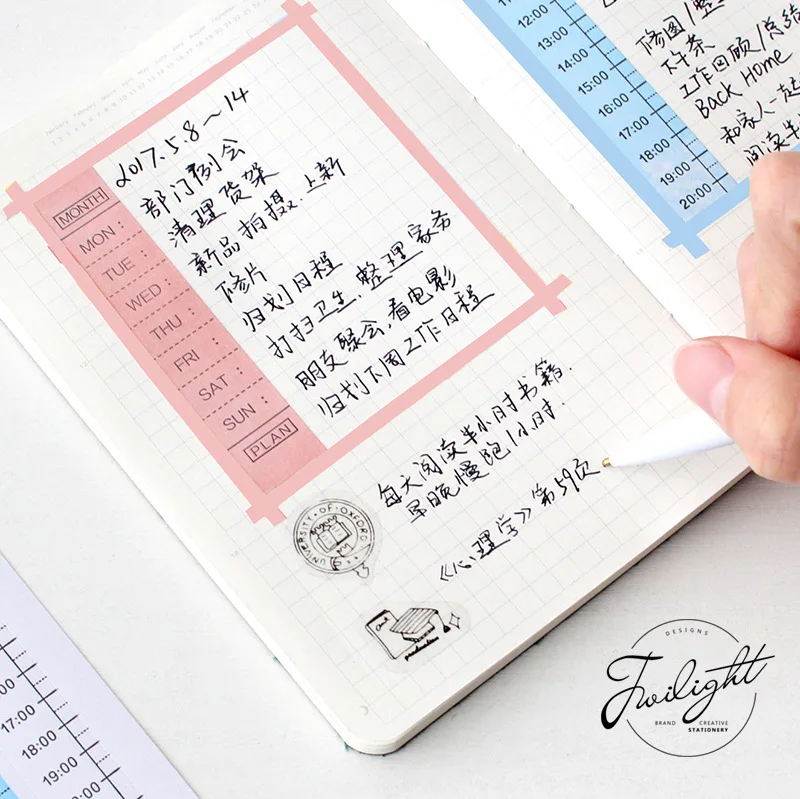 2017.5.8～14
MONTH
部门例会
MON:
清理货架
TUE:
新品拍摄.上新
WED
修片
THU:
归划日程
FRI:
打扫卫生.整理家务
SAT:
朋友聚会,看电影
SUN:
归划下周工作日程
PLAN
每天阅读半小时书籍.
早晚慢跑1小时.
《心理学》第59页
UNIVERSITY OF OXFORD
12:00
13:00
14:00
15:00
16:00
17:00
18:00
19:00
20:00
修图/整
下午茶
工作回顾/总结
Back Home
和家人一起
阅读半
17:00
18:00
19:00
DESIGNS
Twilight
BRAND CREATIVE
STATIONERY